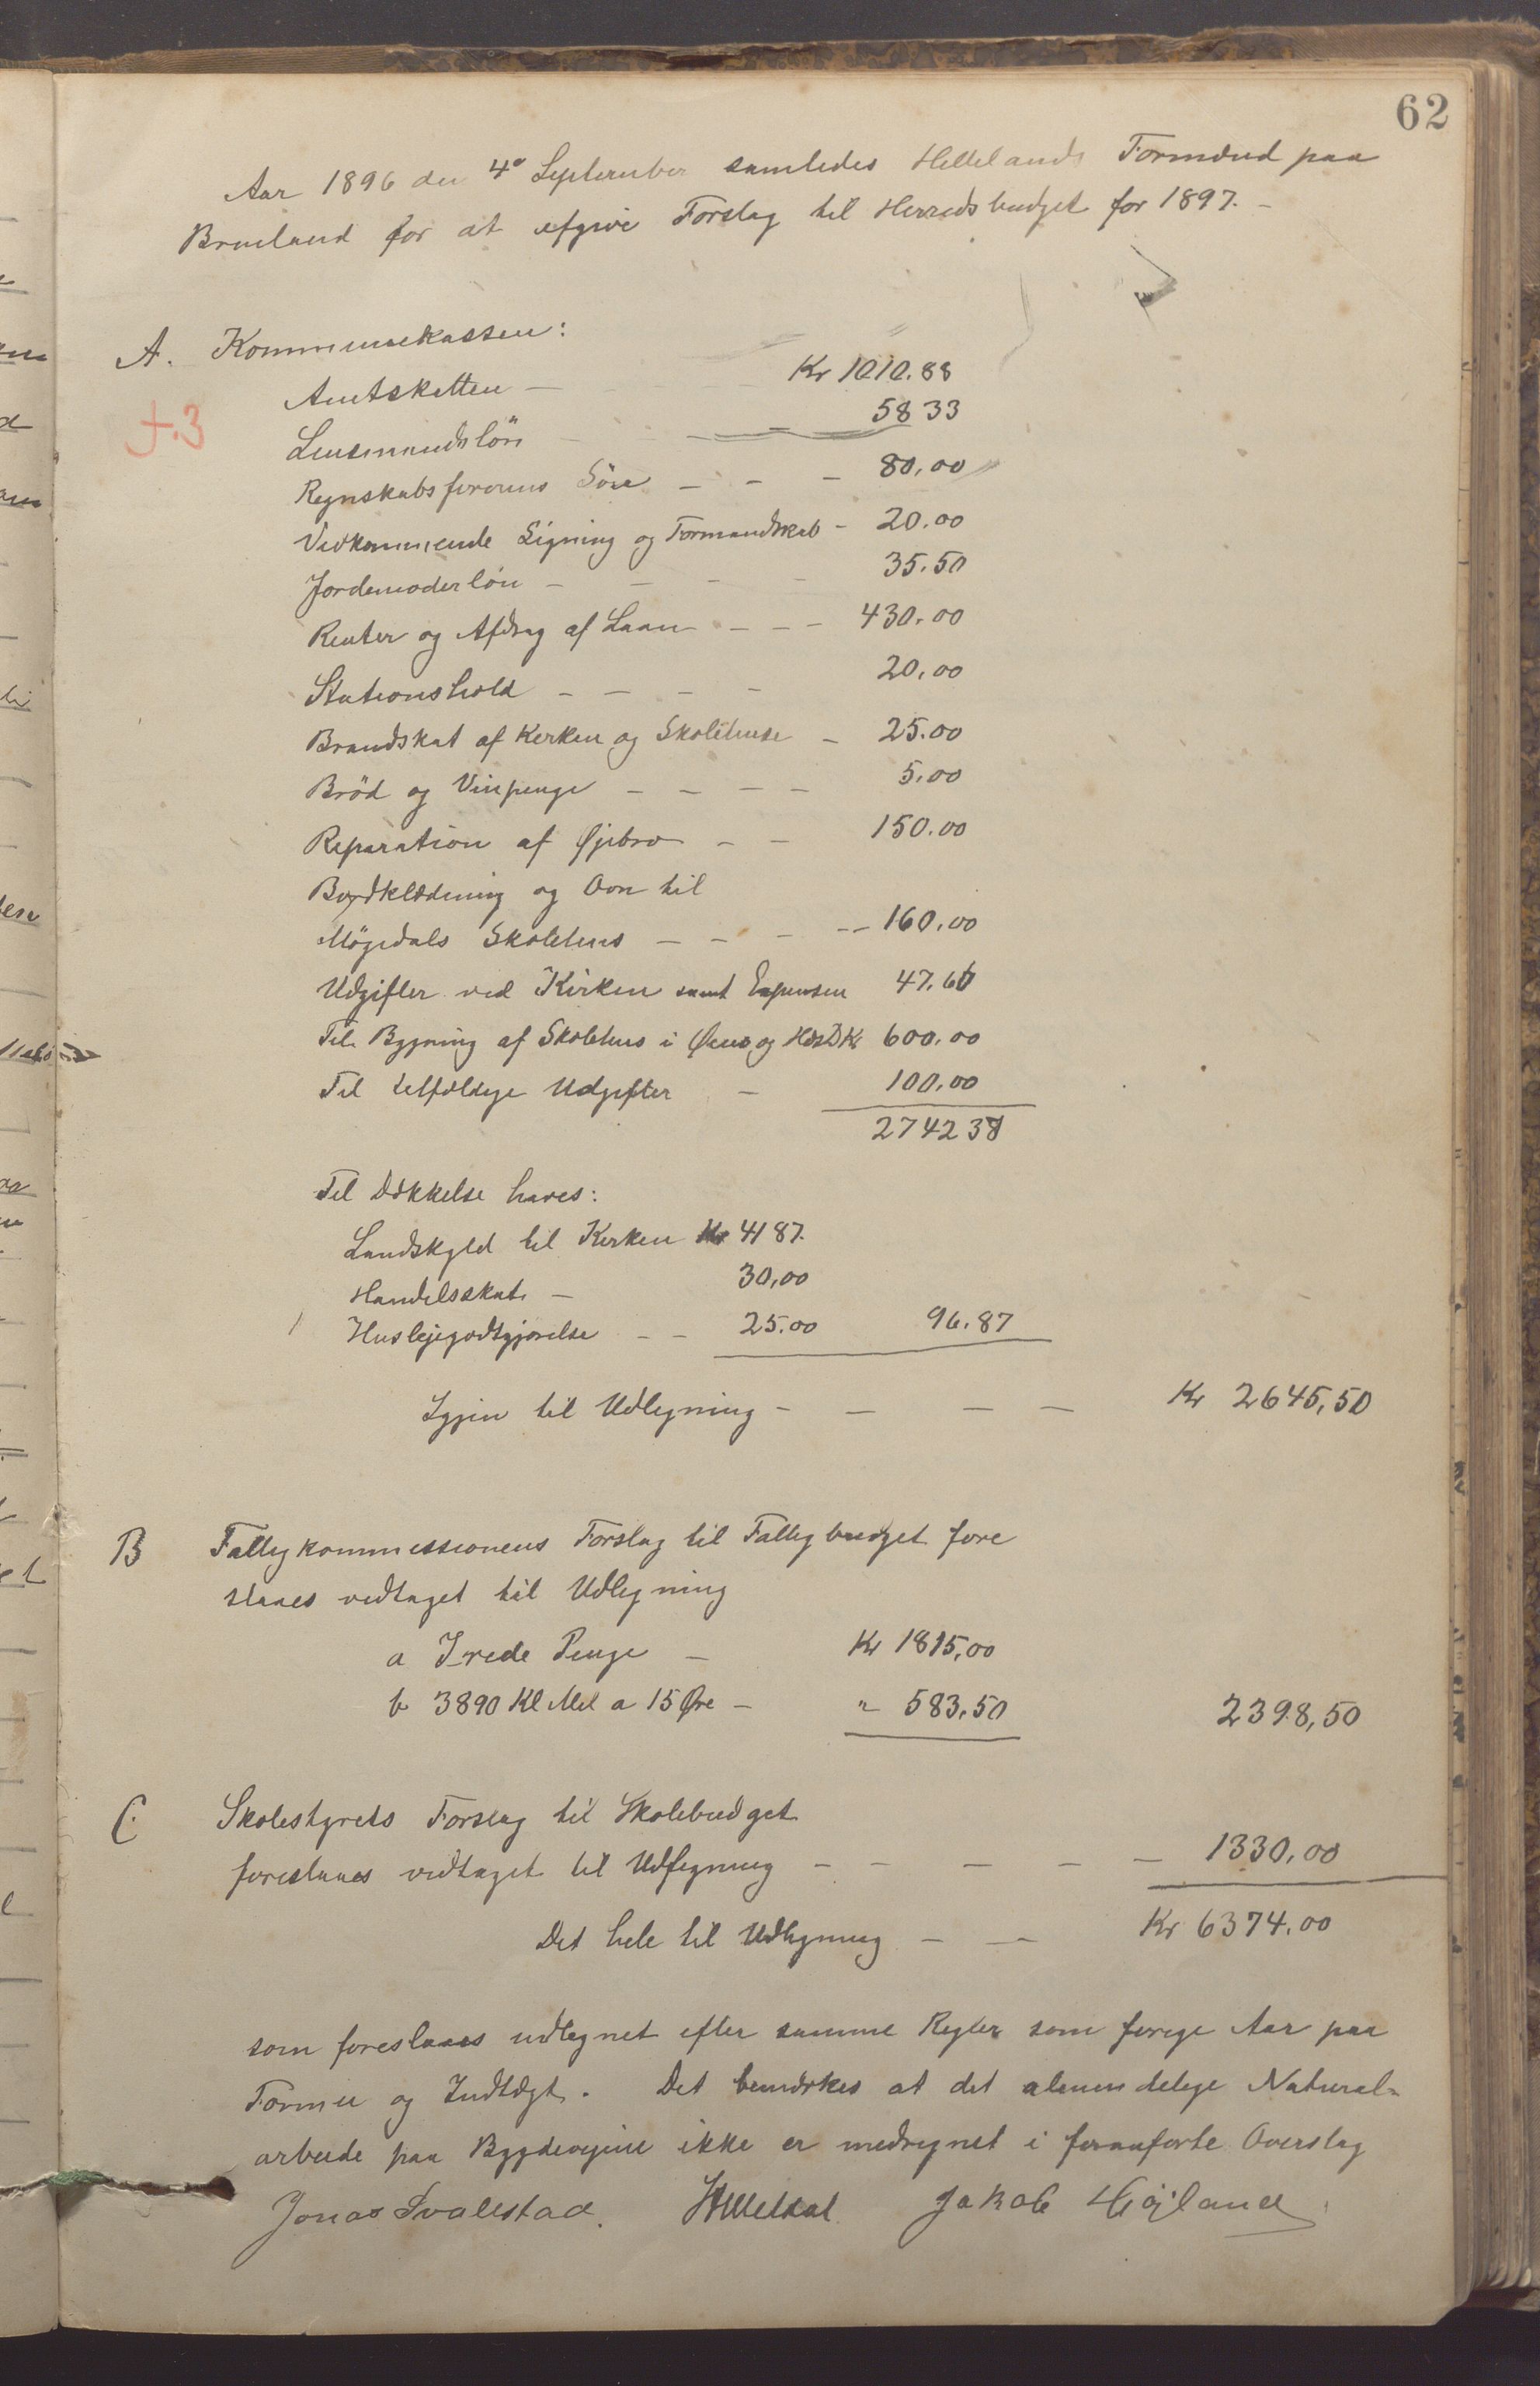 62
Aar 1896 den 4de September samledes Hellelands Formænd paa
Brueland for at afgive Forslag til Herredsbudget for 1897. -
A. Kommunekassen:
Amtskatten — Kr 1010.88
t.3
Lensmandsløn 58 33
Regnskabsførerens Løn — — — 80,00
Vedkommende Ligning og Formandskab — 20.00
Jordemoderløn — — — — 35.50
Renter og Afdrag af Laan — — — 430.00
Stationshold — — — — 20,00
Brandskat af Kirken og Skolehuse — 25.00
Brød og Vinpenge — — — — 5,00
Reparation af Øjebro — — 150.00
Bordklædning og Ovn til
Møgedals Skolehus — — — — 160,00
Udgifter ved Kirken samt Expensen 47.67
Til Bygning af Skolehus i Øens og Kr 600.00
Til tilfældige Udgifter — 100,00
2742 37
Til Dækkelse haves:
Landskyld til Kirken Kr 41 87.
Handelsskat — 30,00
Huslejegodtgjørelse — — 25.00 96.87
Igjen til Udligning — — — — Kr 2645,50
B Fattigkommissionens Forslag til Fattigbudget fore
slaaes vedtaget til Udligning
a I rede Penge — Kr 1815,00
b 3890 Kl Mel a 15 Øre — " 583,50 2398,50
C. Skolestyrets Forslag til Skolebudget
foreslaaes vedtaget til Udligning — — — — — 1330,00
Det hele til Udligning — — Kr 6374.00
som foreslaaes udlignet efter samme Regler som forige Aar paa
Formue og Indtægt. Det bemærkes at det almindelige Natural-
arbeide paa Bygdeveiene ikke er medregnet i foranførte Overslag
Jonas Svalestad. Jakob Højland